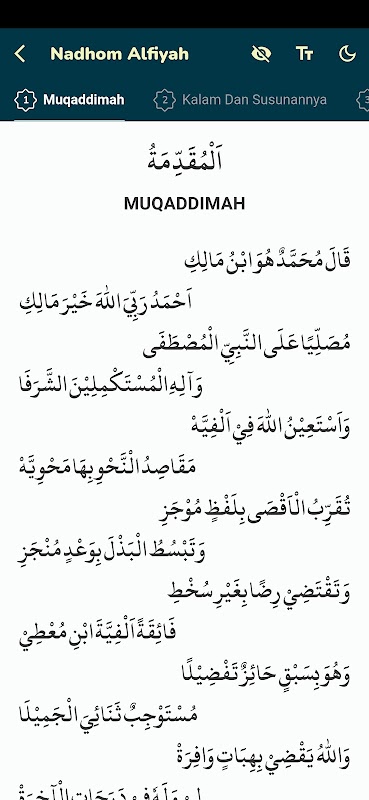 Nadhom Alfiyah
1 Muqaddimah
2 Kalam Dan Susunannya
3
اَلْمُقَدِّمَةُ
MUQADDIMAH
قَالَ مُحَمَّدٌ هُوَ ابْنُ مَالِكِ
اَحْمَدُ رَبِّيَ اللهَ خَيْرَ مَالِكِ
مُصَلِّيًا عَلَى النَّبِيِّ الْمُصْطَفَى
وَآلِهِ الْمُسْتَكْمِلِيْنَ الشَّرَفَا
وَاَسْتَعِيْنُ اللهَ فِيْ اَلْفِيَّهْ
مَقَاصِدُ النَّحْوِ بِهَا مَحْوِيَّهْ
تُقَرِّبُ الْاَقْصَى بِلَفْظٍ مُوْجَزِ
وَتَبْسُطُ الْبَذْلَ بِوَعْدٍ مُنْجَزِ
وَتَقْتَضِيْ رِضًا بِغَيْرِ سُخْطِ
فَائِقَةً اَلْفِيَّةَ ابْنِ مُعْطِيْ
وَهُوَ بِسَبْقٍ حَائِزٌ تَفْضِيْلًا
مُسْتَوْجِبٌ ثَنَائِيَ الْجَمِيْلَا
وَاللهُ يَقْضِيْ بِهِبَاتٍ وَافِرَةْ
لِيْ وَلَهُ فِيْ دَرَجَاتِ الْآخِرَةْ